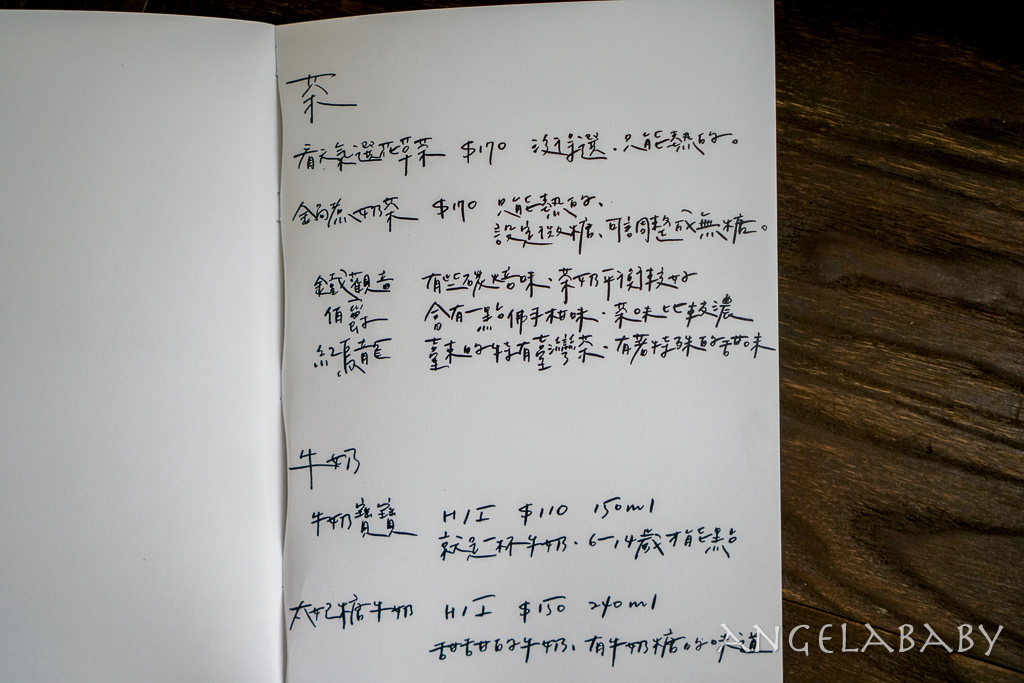 茶
看天氣選花草茶 $170 沒得選、只能熱的。
鍋煮奶茶 $170 只能熱的、
設定微糖、可調整成無糖。
鐵觀音 有些碳焙味、茶奶平衡較好
伯爵 含有一點佛手柑味、茶味比較濃
紅烏龍 臺東的特有臺灣茶、有著特殊的甜味
牛奶
牛奶寶寶 H/I $110 150ml
就是一杯牛奶、6-14歲才能點
太妃糖牛奶 H/I $150 240ml
甜甜的牛奶、有牛奶糖的味道
ANGELABABY